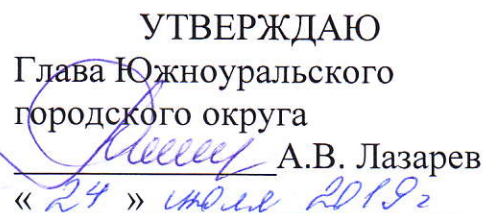 УТВЕРЖДАЮ
Глава Южноуральского
городского округа
А.В. Лазарев
« 24 » июля 2019г